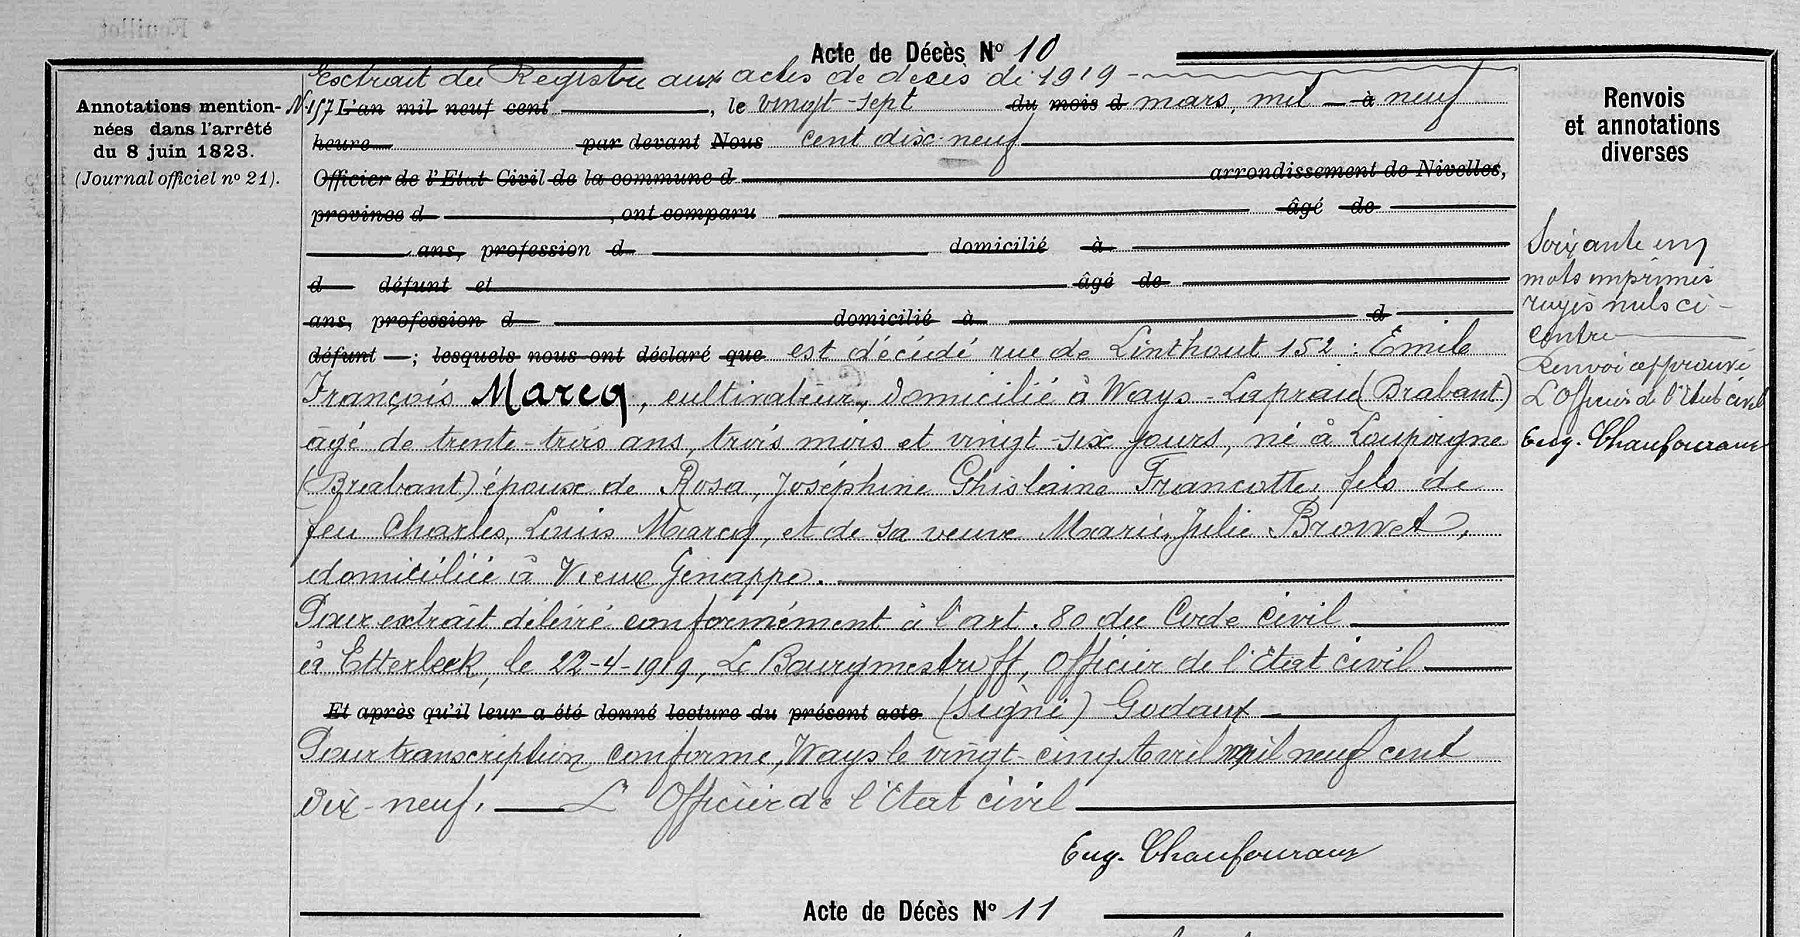 Acte de Décès N° 10
Extrait du Registre aux actes de décès de 1919
Annotations mention-
nées dans l'arrêté
du 8 juin 1823.
(Journal officiel n° 21).
N° 157 L'an mil neuf cent , le vingt-sept du mois d mars, mil à neuf
heure par devant Nous cent dix-neuf
Officier de l'Etat Civil de la commune d arrondissement de Nivelles,
province d , ont comparu âgé de
ans, profession d domicilié à
d défunt et âgé de
ans, profession d domicilié à d
défunt ; lesquels nous ont déclaré que est décédé rue de Linthout 152 : Emile
François Marcq, cultivateur, domicilié à Ways-Laprairie (Brabant)
âgé de trente-trois ans, trois mois et vingt-six jours, né à Loupoigne
(Brabant) époux de Rosa, Joséphine Ghislaine Francotte, fils de
feu Charles, Louis Marcq, et de sa veuve Marie, Julie Browet,
domiciliée à Vieux Genappe.
Pour extrait délivré conformément à l'art. 80 du Code civil
à Etterbeek, le 22-4-1919, Le Bourgmestre ff, Officier de l'Etat civil
Et après qu'il leur a été donné lecture du présent acte (Signé) Godaux
Pour transcription conforme, Ways le vingt-cinq Avril mil neuf cent
dix-neuf. L'Officier de l'Etat civil
Eug. Chaufouraux
Renvois
et annotations
diverses
Soixante un
mots imprimés
rayés nuls ci-
contre
Renvoi approuvé
L'Officier de l'Etat civil
Eug. Chaufouraux
Acte de Décès N° 11